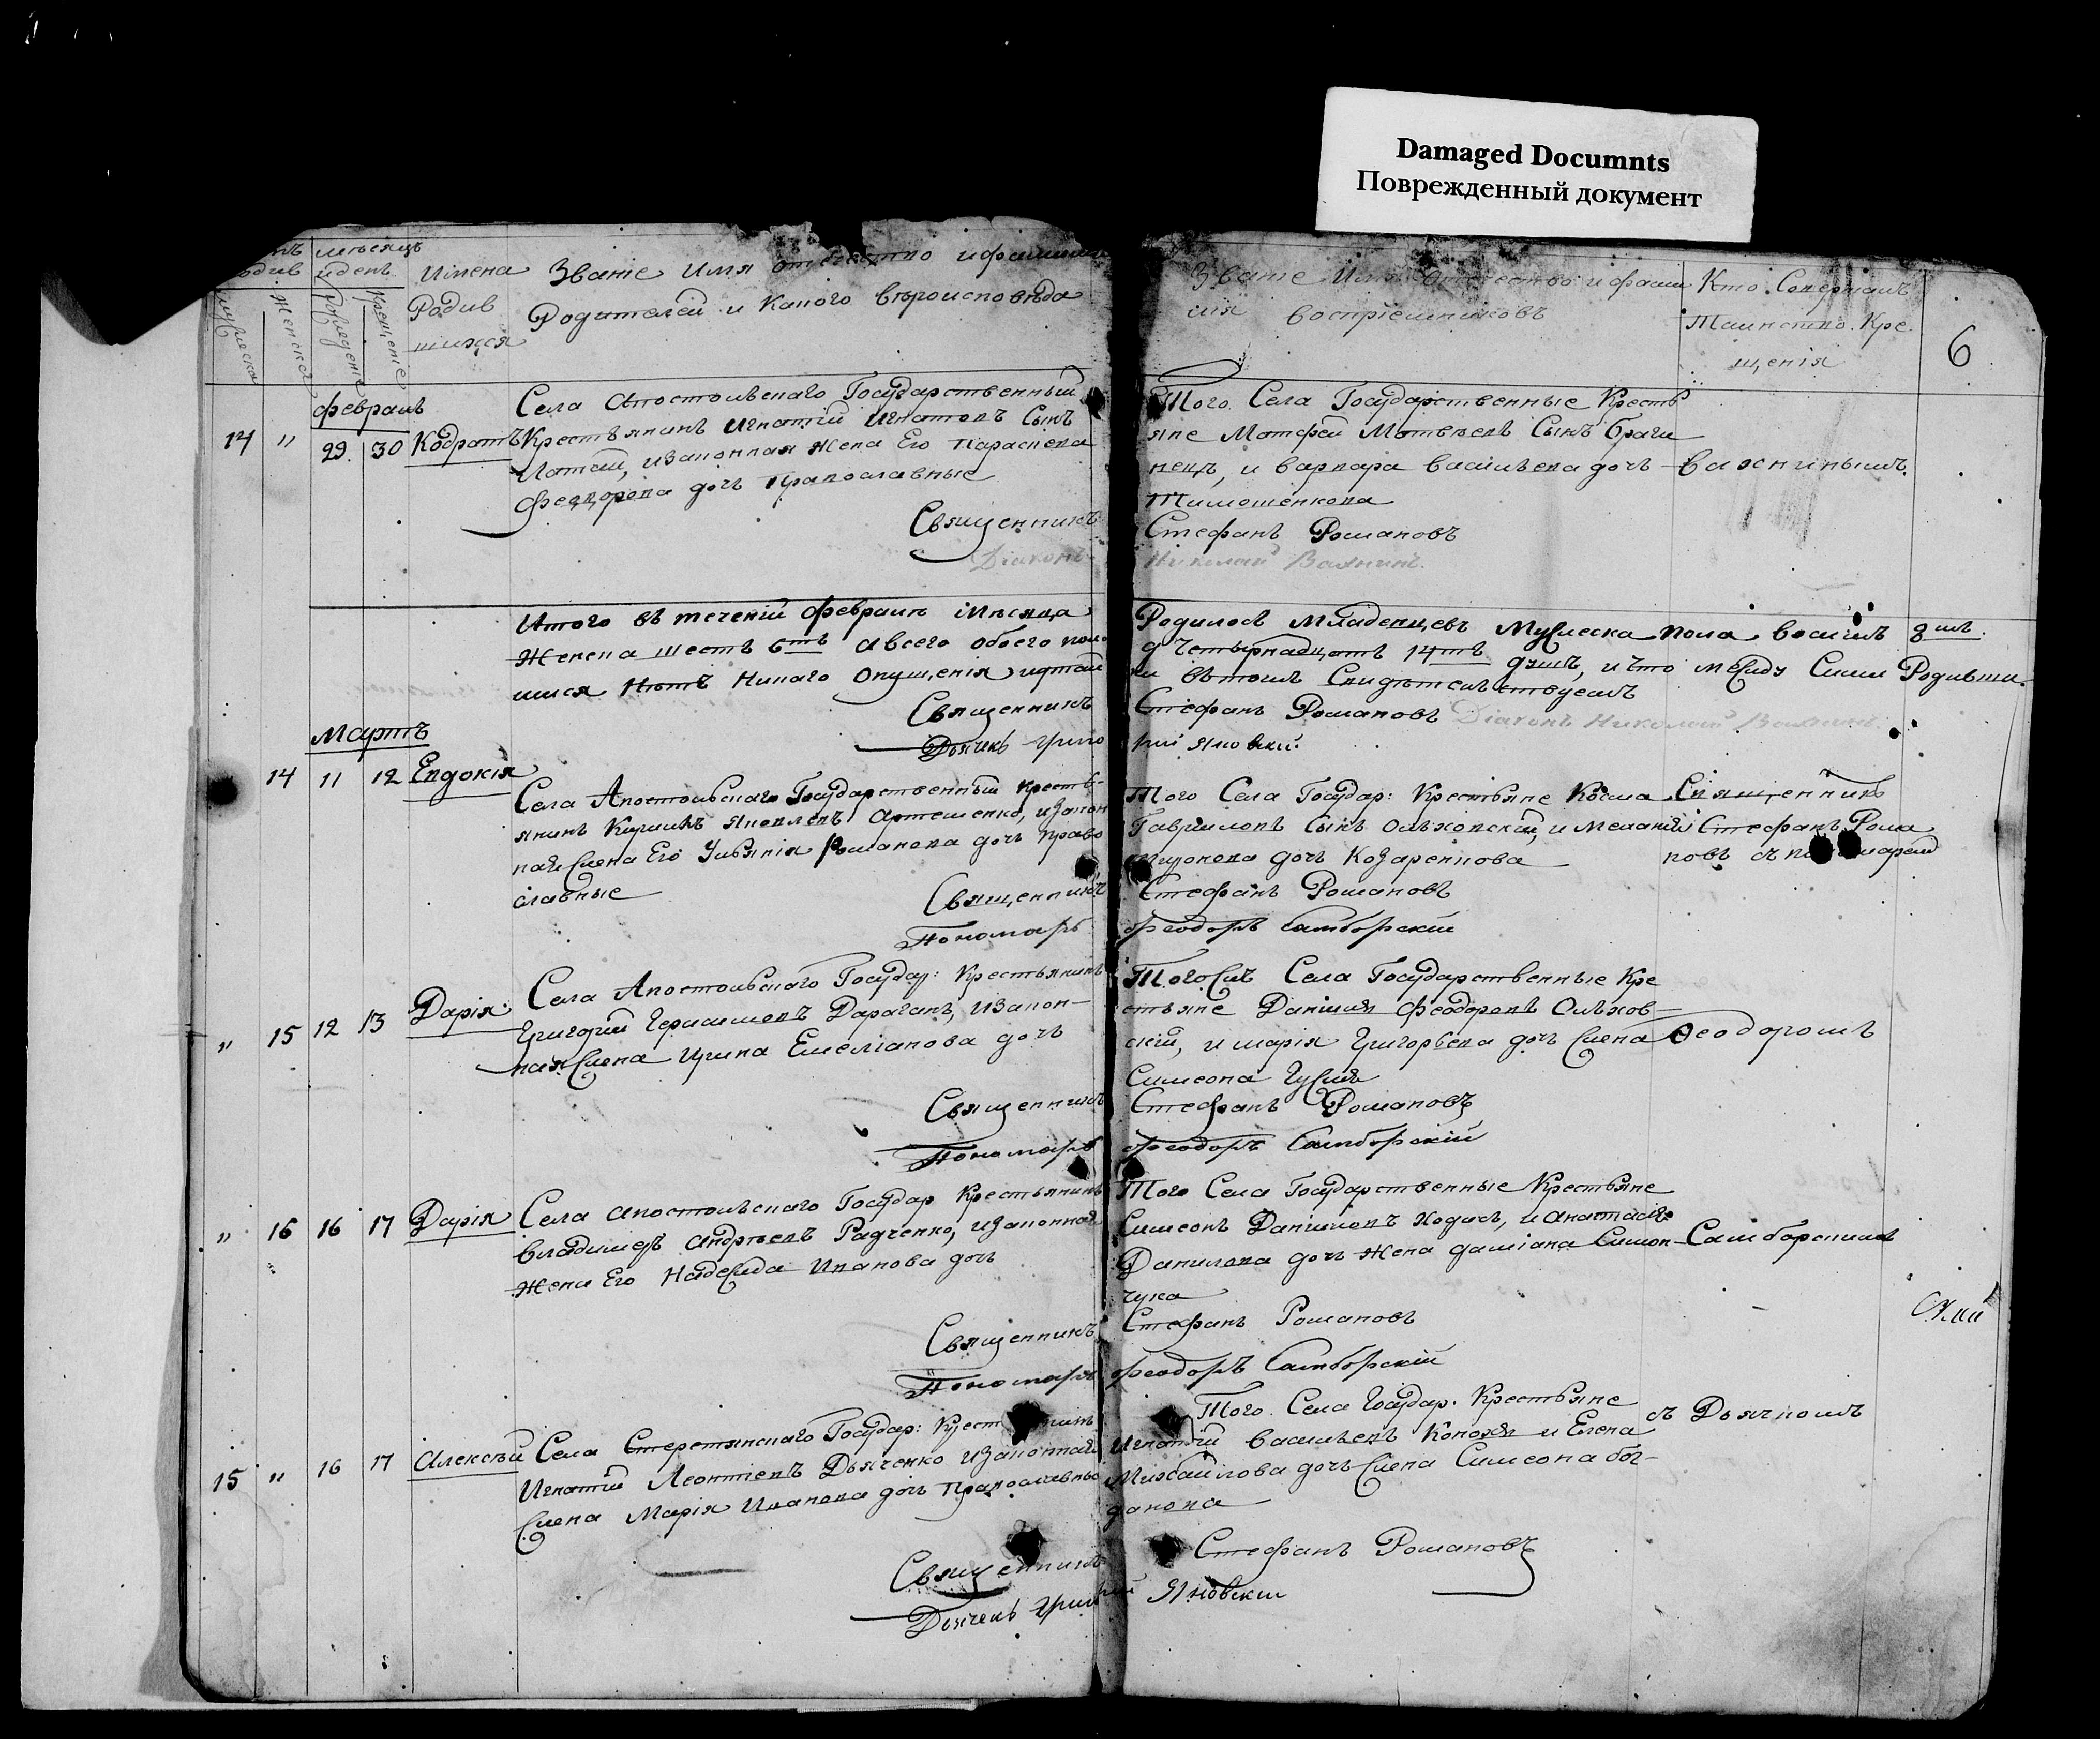 Damaged Documnts
Поврежденный документ
мѣсяцъ
и день
Имена
Родив
шихся
Званіе Имя отечество и фамилія
Родителей и Какого вѣроисповѣда
Мужеска
Женска
Рожденіе
Крещеніе
Званіе Имя Отечество и фами
лія воспріемниковъ
Кто Совершалъ
Таинство Кре
щенія
6
февраль
14 " 29 30 Кодратъ
Села Апостольскаго Государственный
Крестьянинъ Игнатій Игнатовъ Сынъ
и Законная Жена Его Параскева
Феодорова дочь православные
Священникъ
Діаконъ
Того Села Государственные Кресть
яне Матфей Матвѣевъ Сынъ Браги
нецъ, и варвара васильева дочь
Тимошенкова
Стефанъ Романовъ
Николай Вахнинъ
Вахнинымъ
Итого въ теченіи февраля Мѣсяца
Женска шесть 6ть а всего обоего пола
шися Нѣтъ Никаго Опущенія
Священникъ
Дьячекъ Григо
Родилось Младенцевъ Мужеска пола восемь 8мь
Четырнадцать 14ть душъ, и что между Сими Родивши
въ томъ Свидѣтельствуемъ
Стефанъ Романовъ Діаконъ Николай Вахнинъ
рій Яновскій
Мартъ
14 11 12 Евдокія
Села Апостольскаго Государственный кресть
янинъ Кириллъ Яковлевъ Артеменко, и Закон
ная жена Его Ульянія Романова дочь право
славные
Священникъ
Пономарь
Того Села Государ: Крестьяне Косма
Гавриловъ Сынъ Ольховскій, и Меланія
дочь Козаренкова
Стефанъ Романовъ
Феодоръ Самборскій
Священникъ
Стефанъ Рома
новъ съ
" 15 12 13 Дарія
Села Апостольскаго Государ: Крестьянинъ
Григорій Герасимовъ Дараганъ, и Закон
ная жена Ирина Емеліанова дочь
Священникъ
Пономарь
Того жъ Села Государственные Кре
стьяне Даніилъ Феодоровъ Ольхов
скій, и марія Григорьева дочь жена
Симеона
Стефанъ Романовъ
Феодоръ Самборскій
Феодоромъ
" 16 16 17 Дарія
Села Апостольскаго Государ Крестьянинъ
владимеръ Андрѣевъ Радченко, и Законная
Жена Его Надежда Иванова дочь
Священникъ
Пономарь
Того Села Государственные Крестьяне
Симеонъ Даниловъ Ходисъ, и Анастасія
Данилова дочь Жена дамiана Симон
чука
Стефанъ Романовъ
Феодоръ Самборскій
Самборскимъ
15 " 16 17 Алексѣй
Села Государ:
Игнатій Леонтіевъ Дьяченко и Законная
жена Марія Иванова дочь Православные
Священникъ
Дьячекъ Григорій
Того Села Государ. Крестьяне
Игнатій васильевъ и Елена
Михайлова дочь жена Симеона бог
данова
Стефанъ Романовъ
Яновскій
съ Дьячкомъ